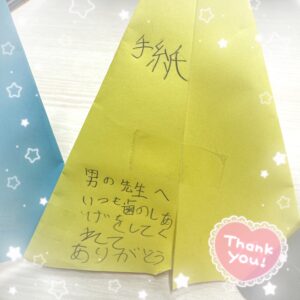 手紙
男の先生へ
いつも歯のしあ
げをしてく
れて
ありがとう
Thank
you!